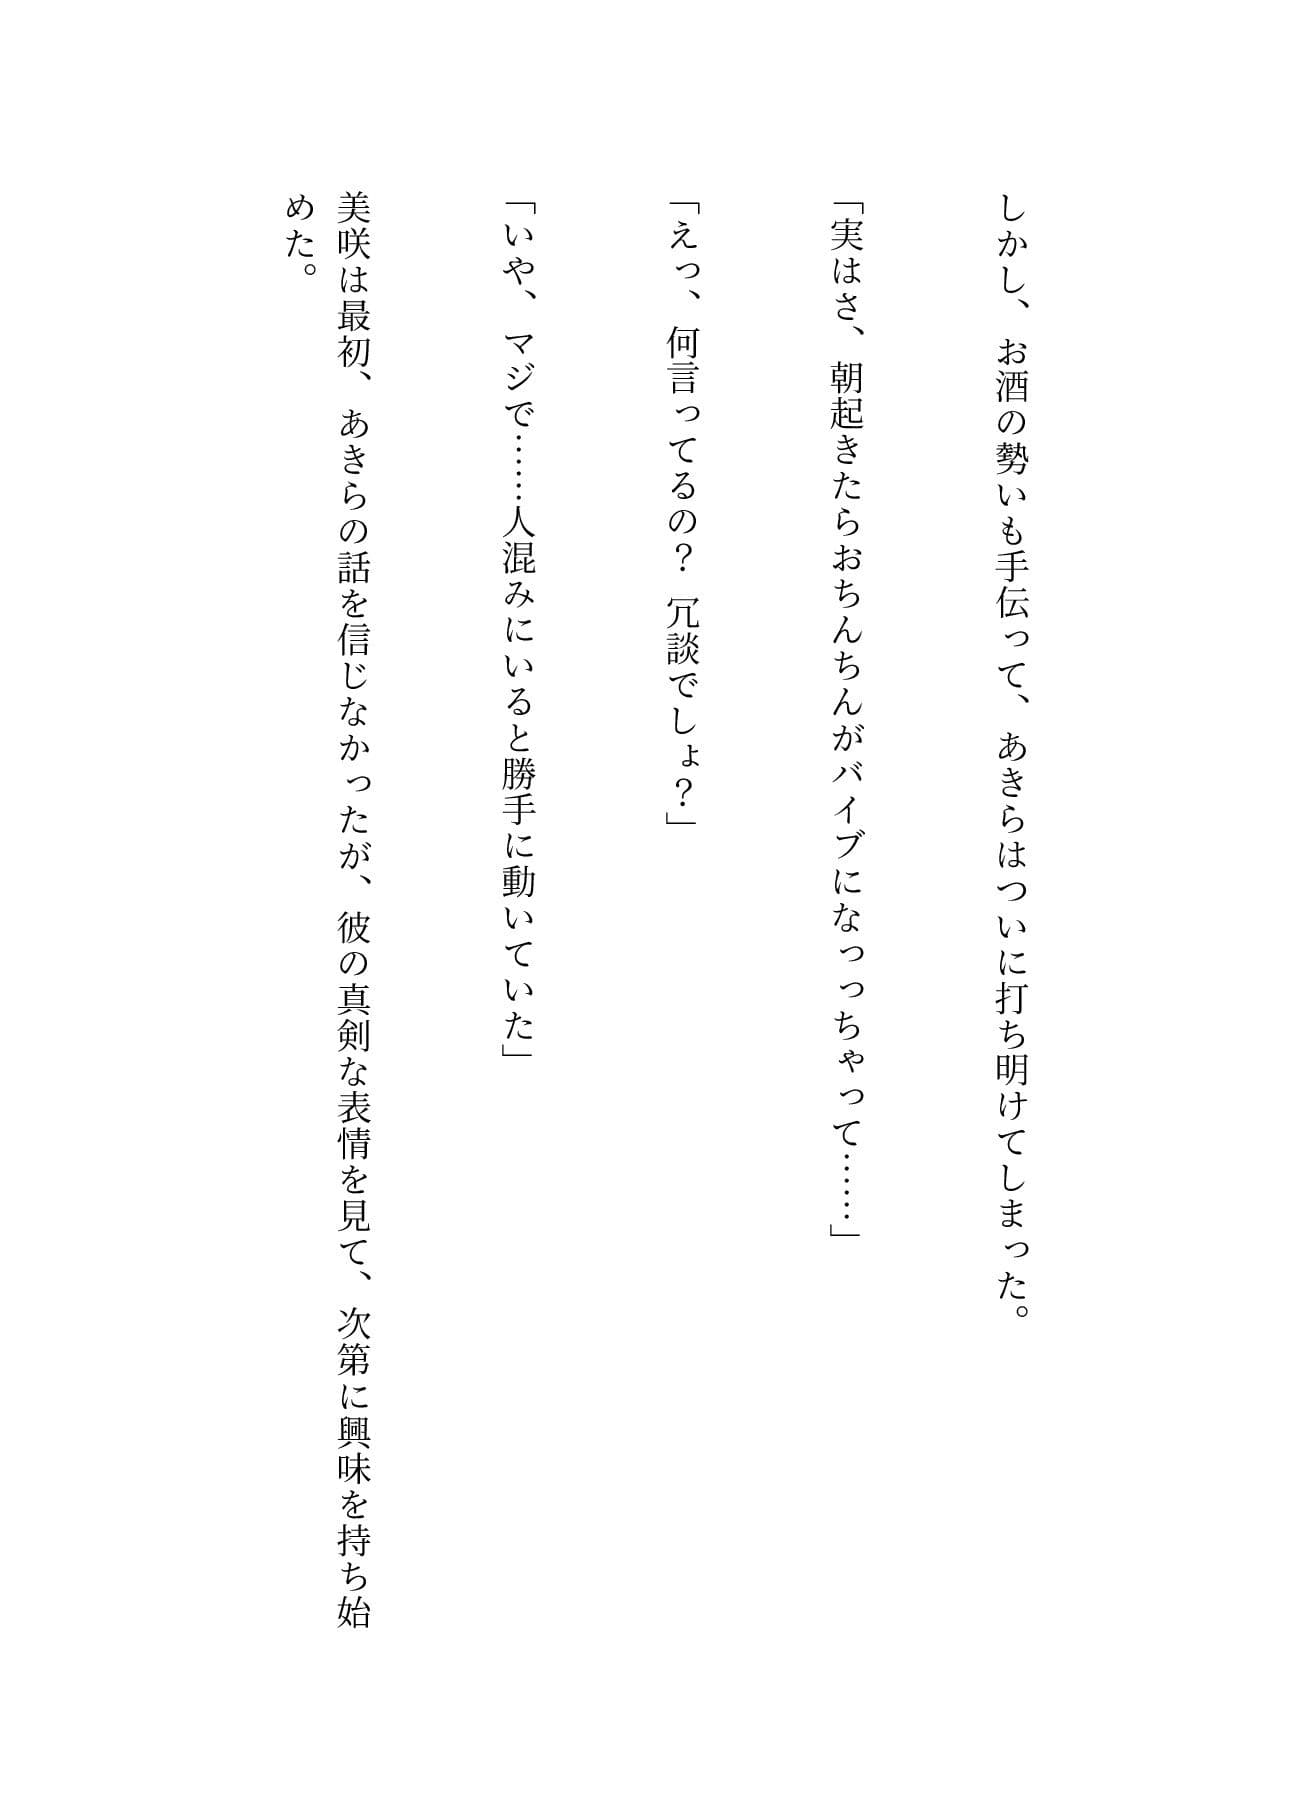 しかし、お酒の勢いも手伝って、あきらはついに打ち明けてしまった。
「実はさ、朝起きたらおちんちんがバイブになっっちゃって……」
「えっ、何言ってるの？ 冗談でしょ？」
「いや、マジで……人混みにいると勝手に動いていた」
美咲は最初、あきらの話を信じなかったが、彼の真剣な表情を見て、次第に興味を持ち始
めた。